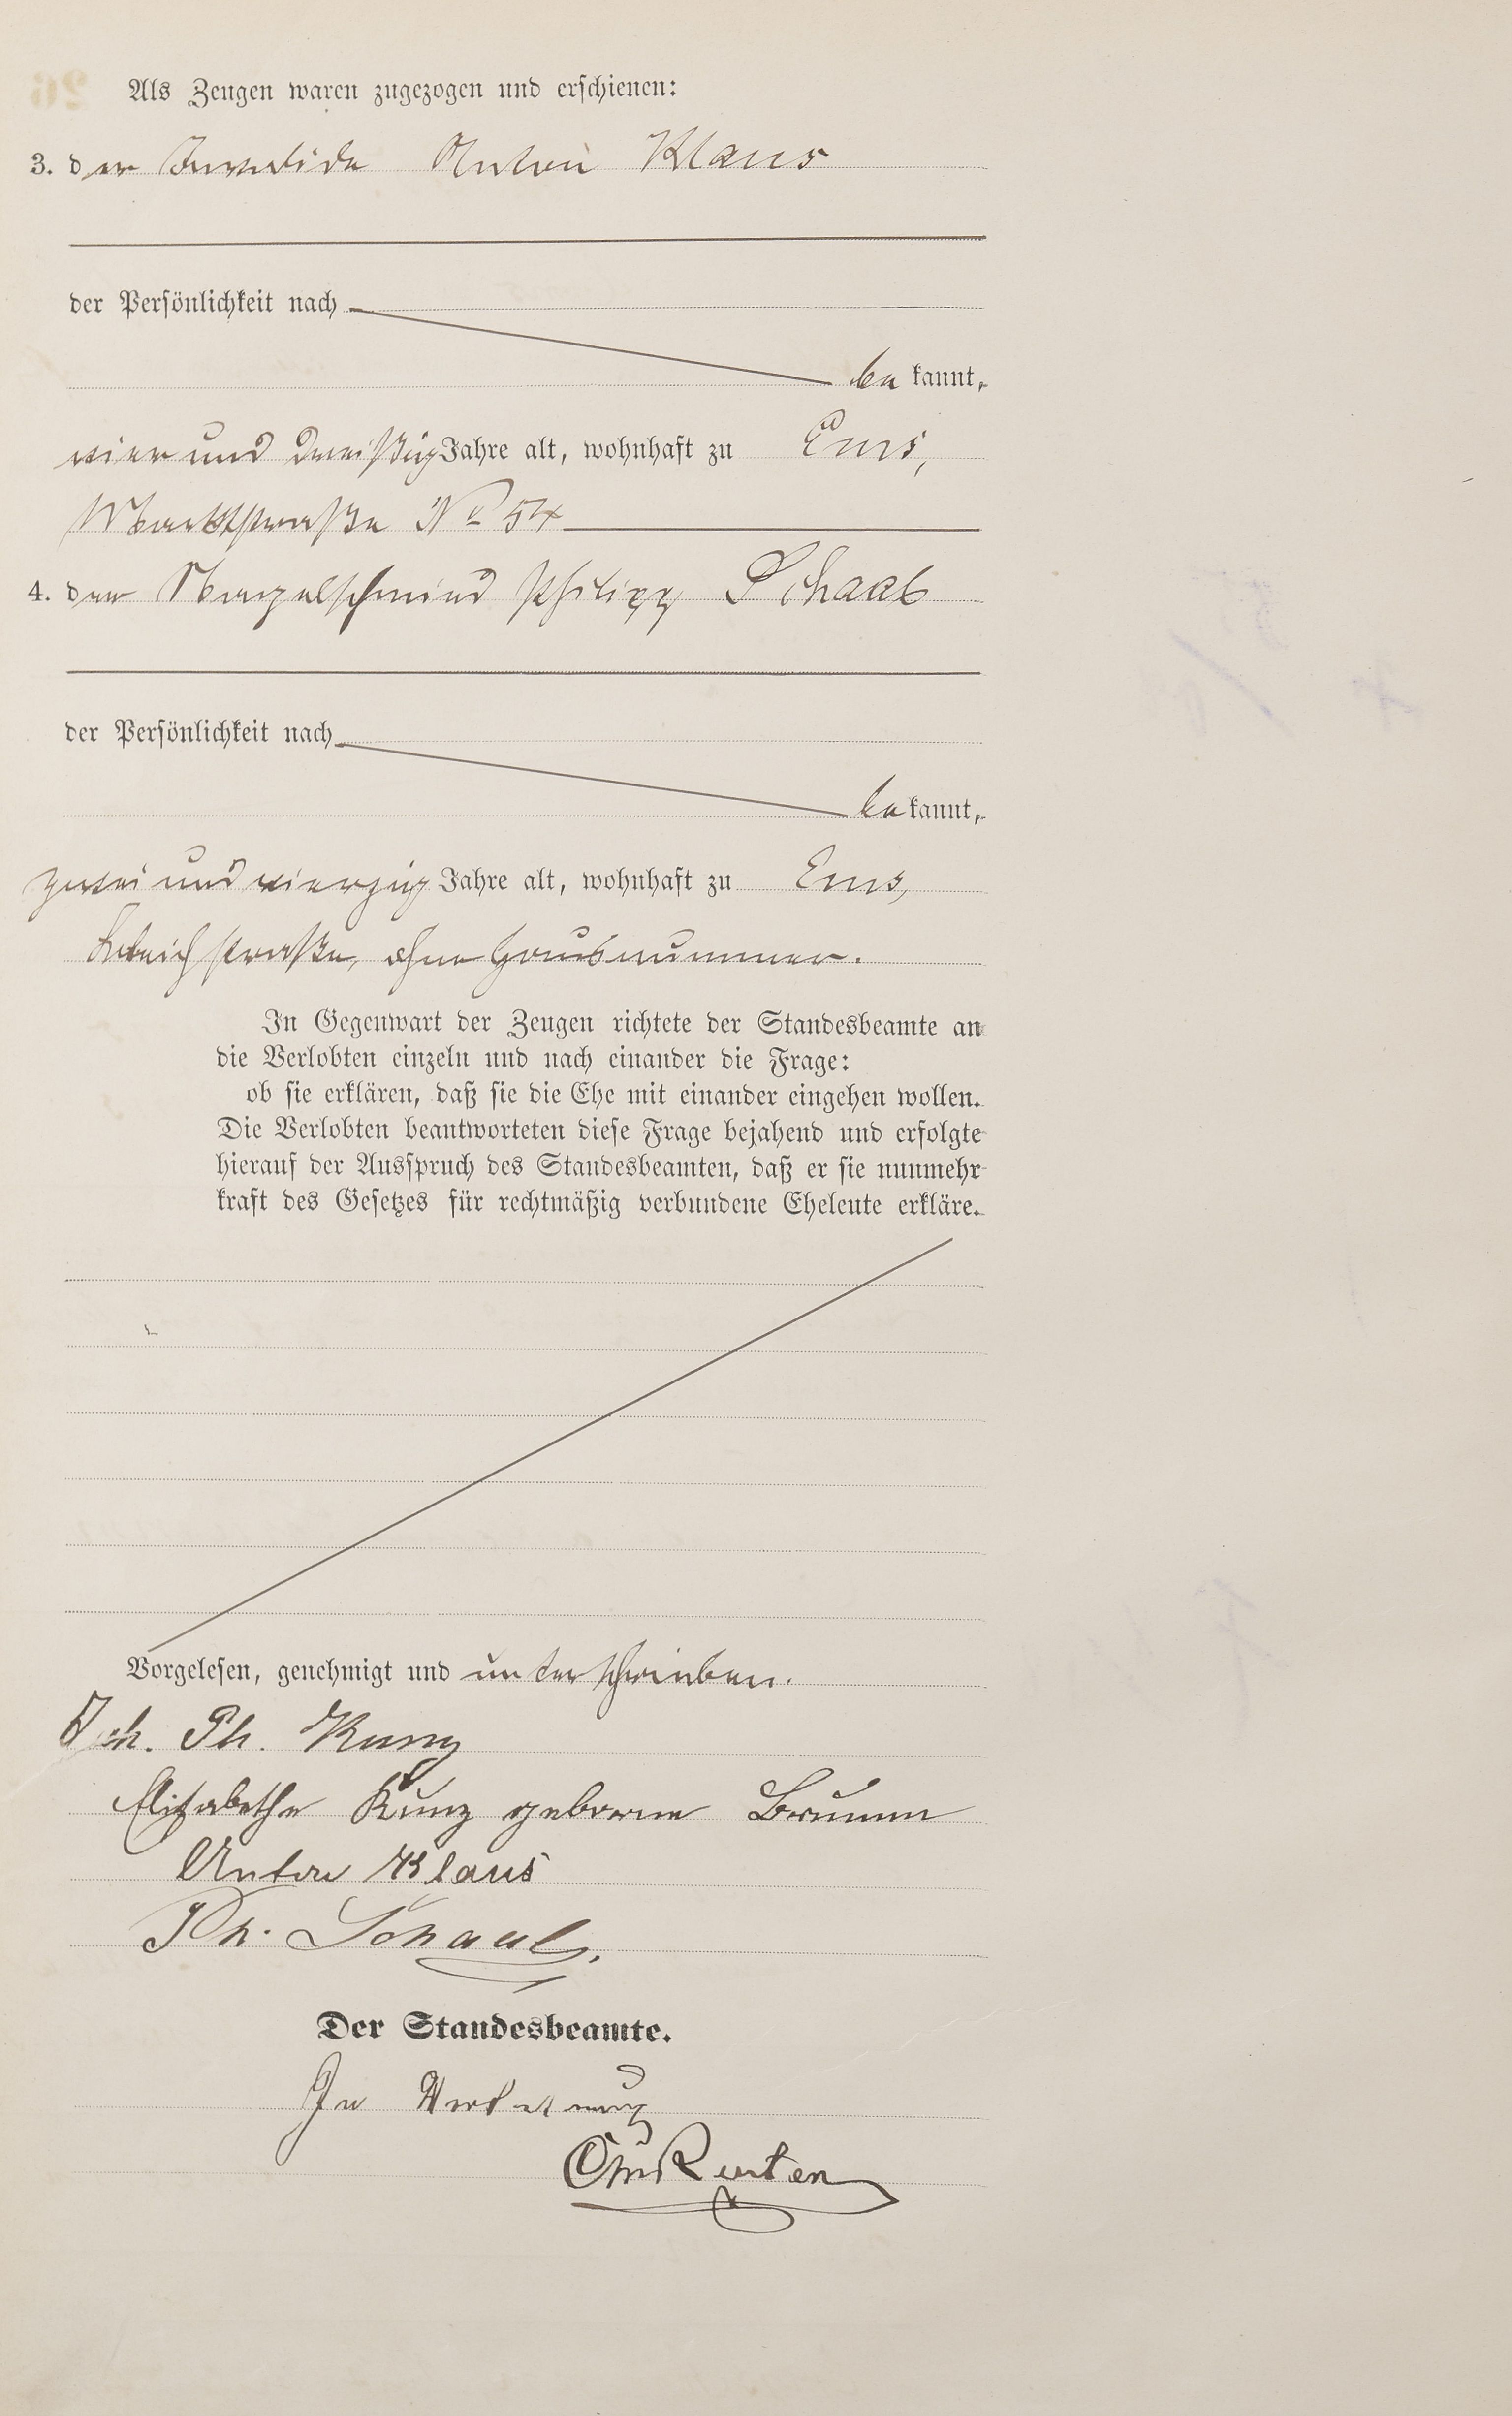 Als Zeugen waren zugezogen und erschienen:
3. der Invalide Anton Klaus
der Persönlichkeit nach
be kannt,
vier und dreißig Jahre alt, wohnhaft zu Ems,
Marktstraße No 54
4. der Nagelschmied Philipp Schaab
der Persönlichkeit nach
be kannt,
zwei und vierzig Jahre alt, wohnhaft zu Ems,
straße, ohne Hausnummer.
In Gegenwart der Zeugen richtete der Standesbeamte an
die Verlobten einzeln und nach einander die Frage:
ob sie erklären, daß sie die Ehe mit einander eingehen wollen.
Die Verlobten beantworteten diese Frage bejahend und erfolgte
hierauf der Ausspruch des Standesbeamten, daß er sie nunmehr
kraft des Gesetzes für rechtmäßig verbundene Eheleute erkläre.
Vorgelesen, genehmigt und unterschrieben.
Joh. Ph. Kunz
Elisabethe Kunz geborne Brumm
Anton Klaus
Ph. Schaab.
Der Standesbeamte.
In Vertretung